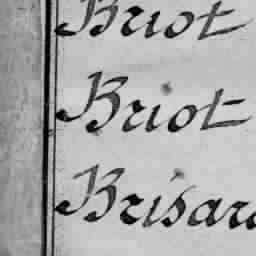 Briot
Briot
Brisar